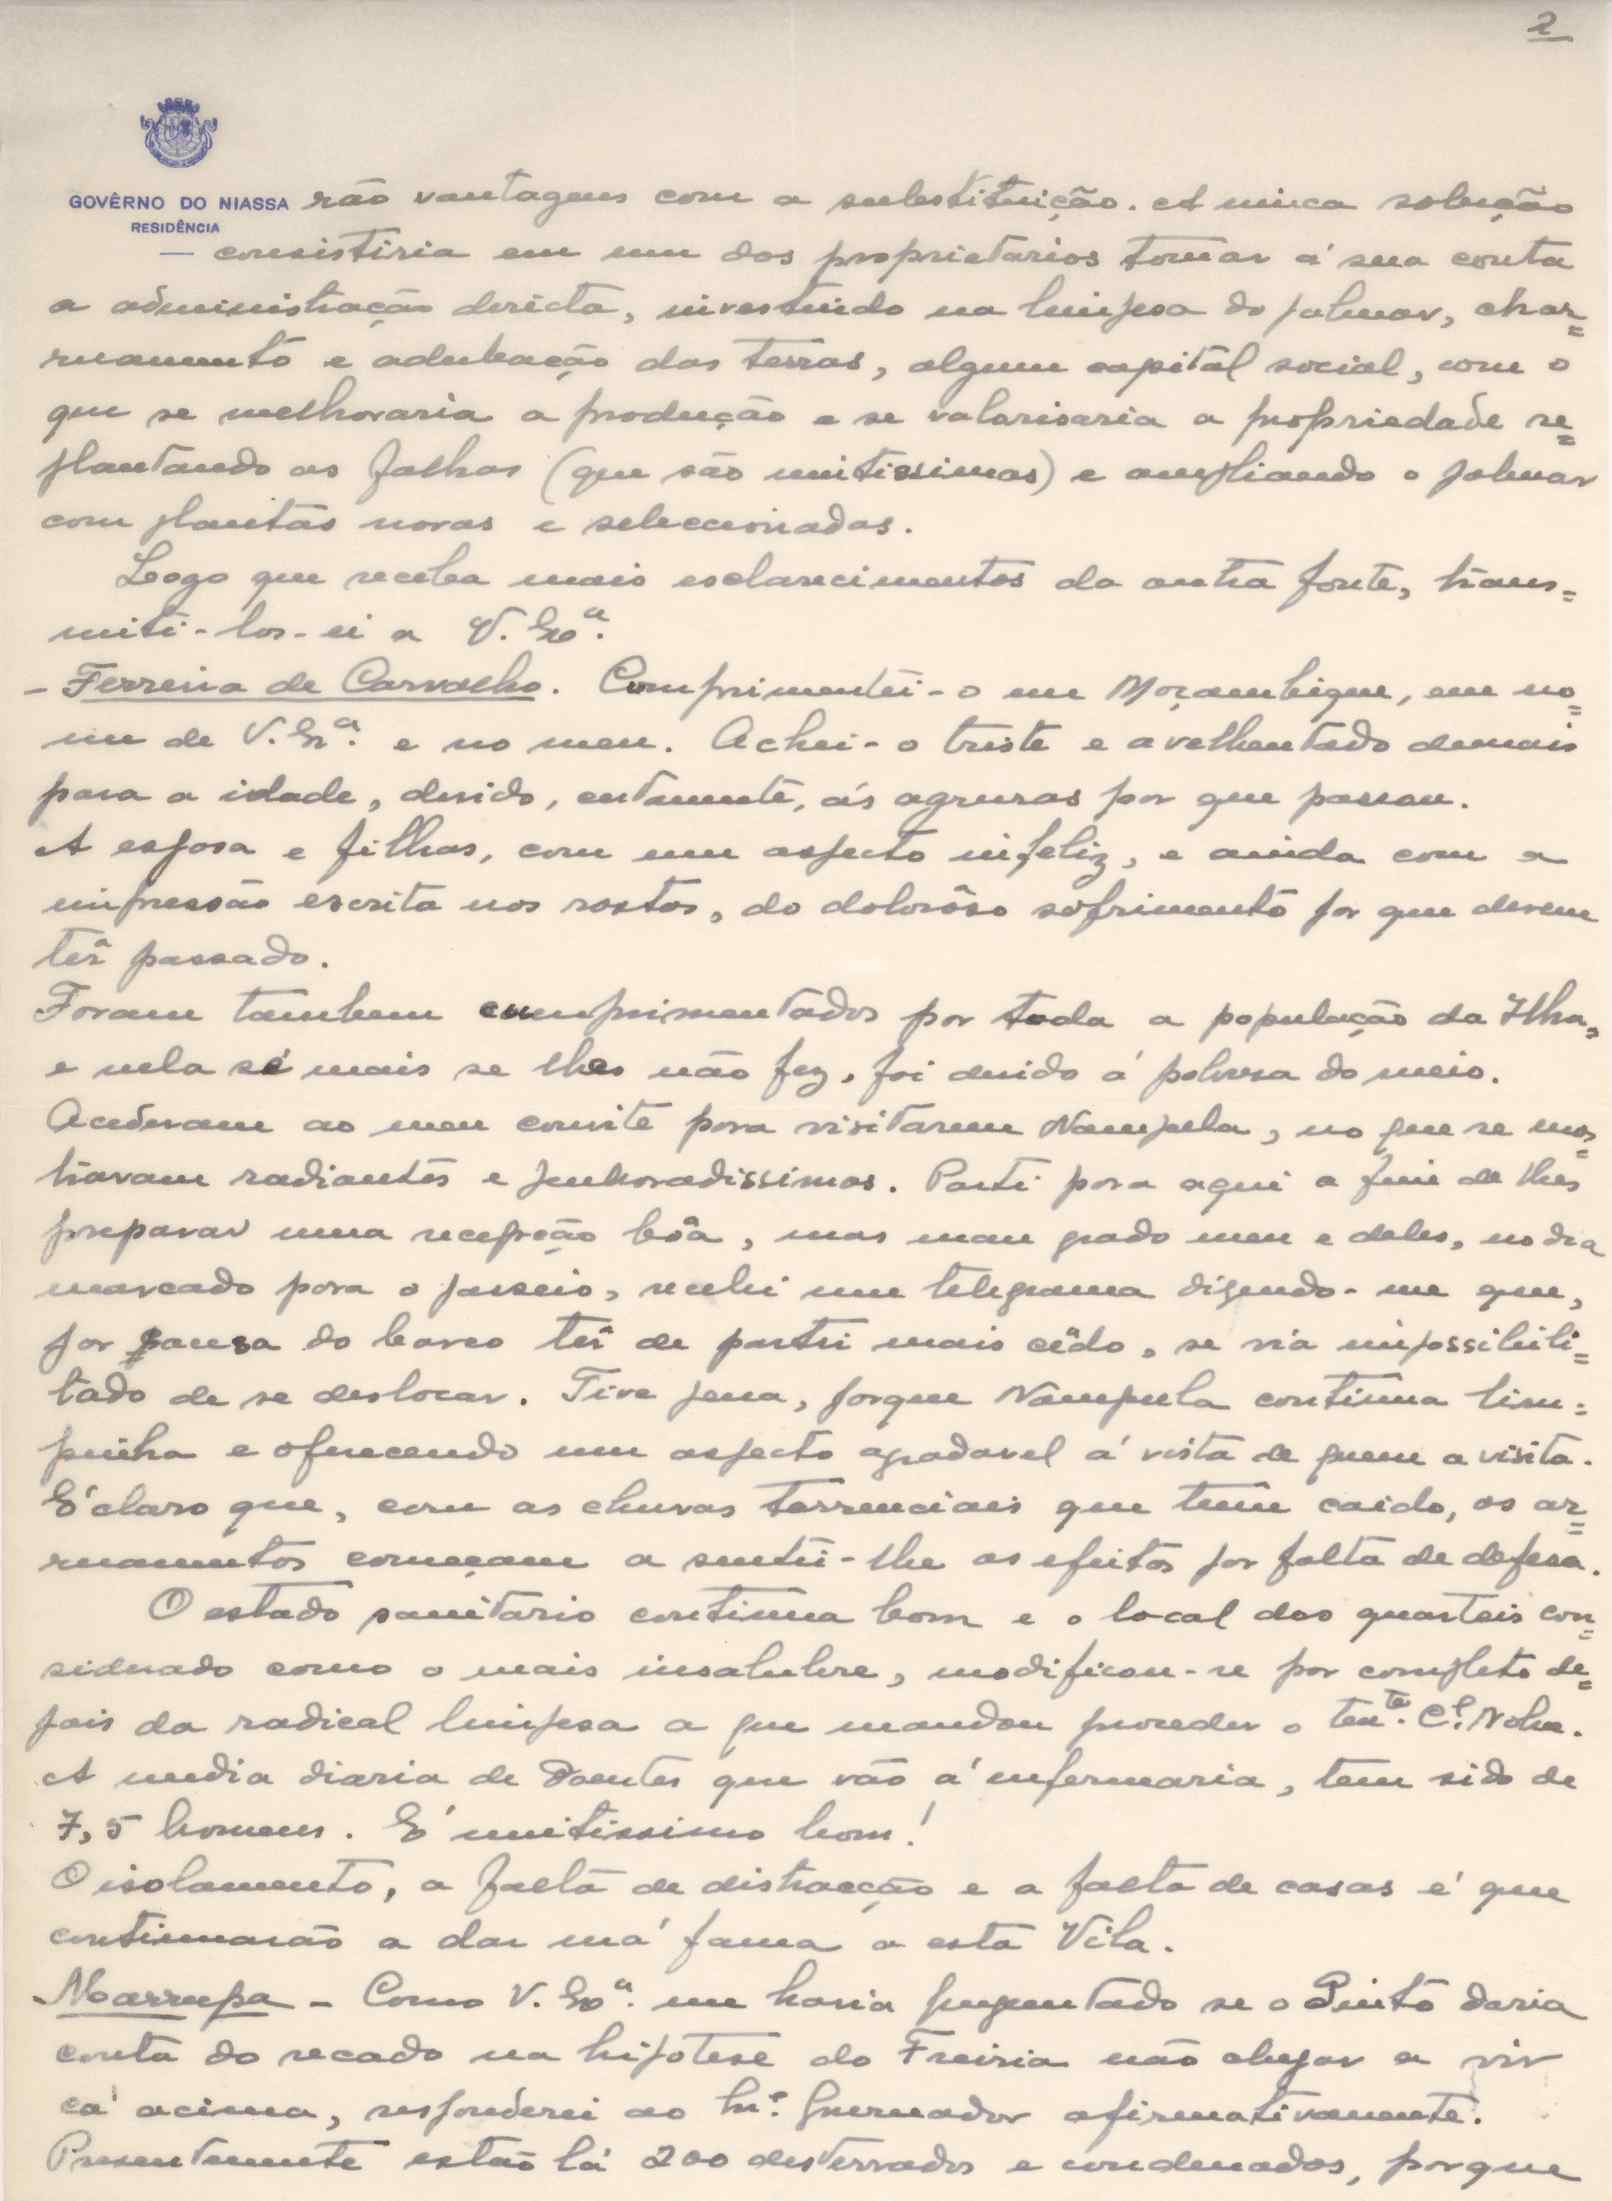 2
GOVÊRNO DO NIASSA
RESIDÊNCIA
rão vantagens com a substituição. A unica solução
consistiria em um dos proprietarios tomar á sua conta
a administração directa, investindo na limpesa do palmar, char=
ruamento e adubação das terras, algum capital social, com o
que se melhoraria a produção e se valorisaria a propriedade re=
plantando as falhas (que são muitissimas) e ampliando o palmar
com plantas novas e seleccionadas.
Logo que receba mais esclarecimentos da outra fonte, trans=
miti-los-ei a V. Exª.
- Ferreira de Carvalho. Comprimentei-o em Moçambique, em no=
me de V. Exª. e no meu. Achei-o triste e avelhentado demais
para a idade, devido, certamente, ás agruras por que passou.
A esposa e filhas, com um aspecto infeliz, e ainda com a
impressão escrita nos rostos, do dolorôso sofrimento por que devem
têr passado.
Foram tambem cumprimentados por toda a população da Ilha,
e nela sé mais se lhes não fez, foi devido á pobresa do meio.
Acederam ao meu convite para visitarem Nampula, no que se mos=
travam radiantes e penhoradissimos. Parti para aqui a fim de lhes
preparar uma recepção bôa, mas mau grado meu e deles, no dia
marcado para o passeio, recebi um telegrama dizendo-me que,
por causa do barco têr de partir mais cêdo, se via impossibili=
tado de se deslocar. Tive pena, porque Nampula continua lim=
pinha e oferecendo um aspecto agradavel á vista de quem a visita.
É claro que, com as chuvas torrenciais que teem caido, os ar=
ruamentos começam a sentir-lhe os efeitos por falta de defesa.
O estado sanitario continua bom e o local dos quarteis con=
siderado como o mais insalubre, modificou-se por completo de=
pois da radical limpesa a que mandou proceder o tente. Cel.
A media diaria de doentes que vão á enfermaria, tem sido de
7,5 homens. É muitissimo bom!
O isolamento, a falta de distracção e a falta de casas é que
continuarão a dar má fama a esta Vila.
- Marrupa - Como V. Exª. me havia perguntado se o Pinto daria
conta do recado na hipotese do Freiria não chegar a vir
cá acima, responderei ao Governador afirmativamente.
Presentemente estão lá 200 desterrados e condenados, porque